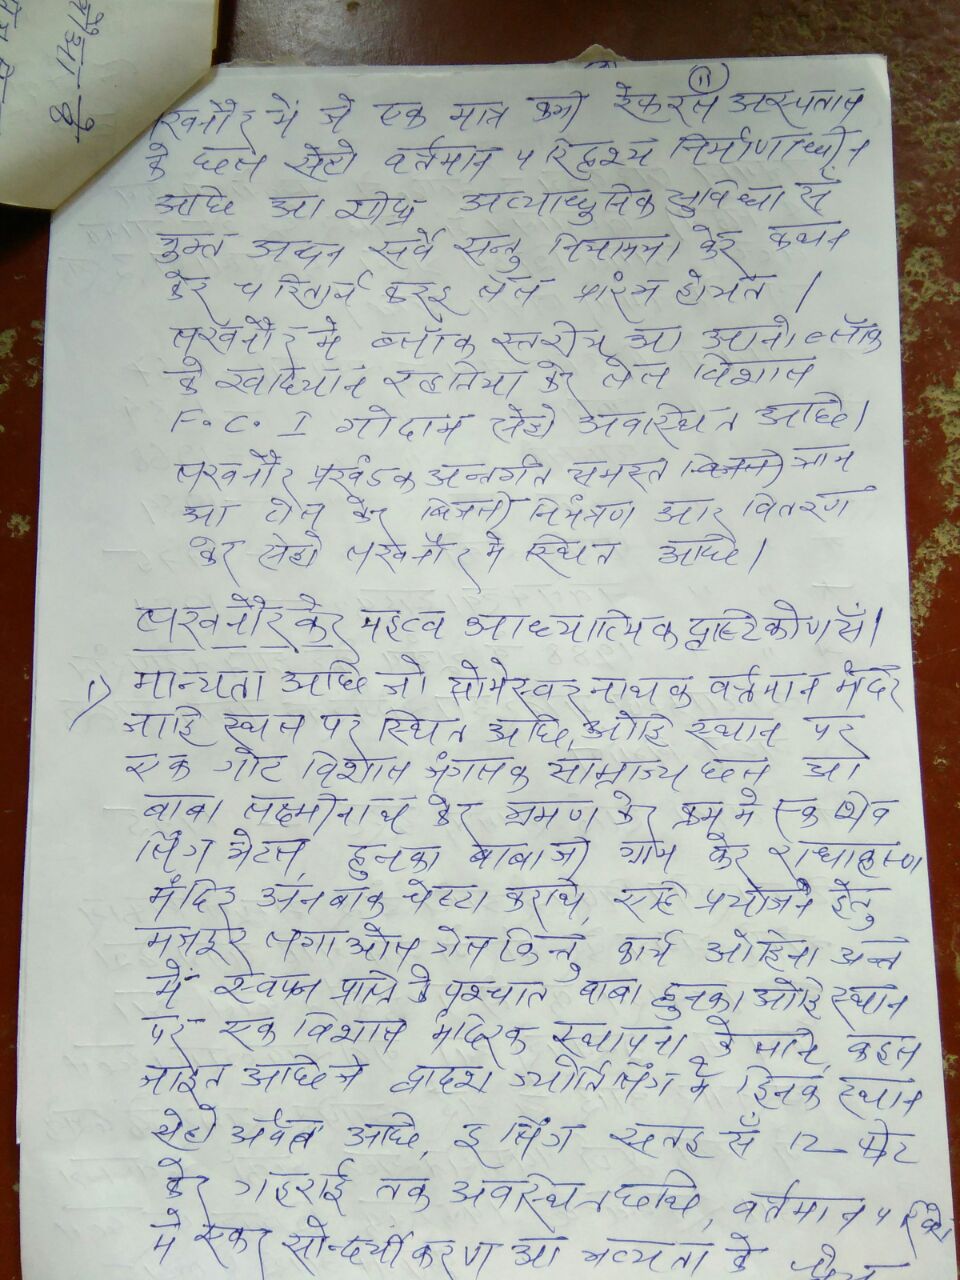 ११
में जे एक मात्र रेफरल अस्पताल
के छल सेहो वर्तमान परिदृश्य निर्माणाधीन
अछि आ शीघ्र अत्याधुनिक सुविधा सँ
युक्त सर्वे सन्तु निरामया केर कथन
केर चरितार्थ करइ लेल प्रारंभ होयत ।
लखनौर मे ब्लॉक स्तरीय आ आनो ब्लॉक
के खाद्यान केर लेल विशाल
F.C.I गोदाम सेहो अवस्थित अछि।
लखनौर प्रखंडक अन्तर्गत समस्त ग्राम
आ टोल केर बिजली नियंत्रण आर वितरण
केर सेहो लखनौर मे स्थित अछि।
लखनौर केर महत्व आध्यात्मिक दृष्टिकोण सँ।
1) मान्यता अछि जो सोमेस्वर नाथक वर्तमान मंदिर
जाहि स्थल पर स्थित अछि, ओहि स्थान पर
एक गोट विशाल जंगलक साम्राज्य छल आ
बाबा लक्ष्मीनाथ केर भ्रमण केर क्रम मे एक शिव
लिंग भेटल, हुनका बाबाजी ग्राम केर राधाकृष्ण
मंदिर अनबाक चेष्टा कराथे, एहि प्रयोजन हेतु
मजदूर लगाओल गेल किन्तु कार्य ओहिना अन्त
में स्वप्न प्राप्ति के पश्चात बाबा हुनका ओहि स्थान
पर एक विशाल मंदिरक स्थापना के लाथे, कहल
जाइत अछि जे द्वादश ज्योर्तिलिंग मे हिनक स्थान
सेहो अछि, इ लिंग सतह सँ 12 फीट
केर गहराई तक अवस्थित छथि, वर्तमान
मे एकर सौन्दर्यीकरण आ भव्यता के